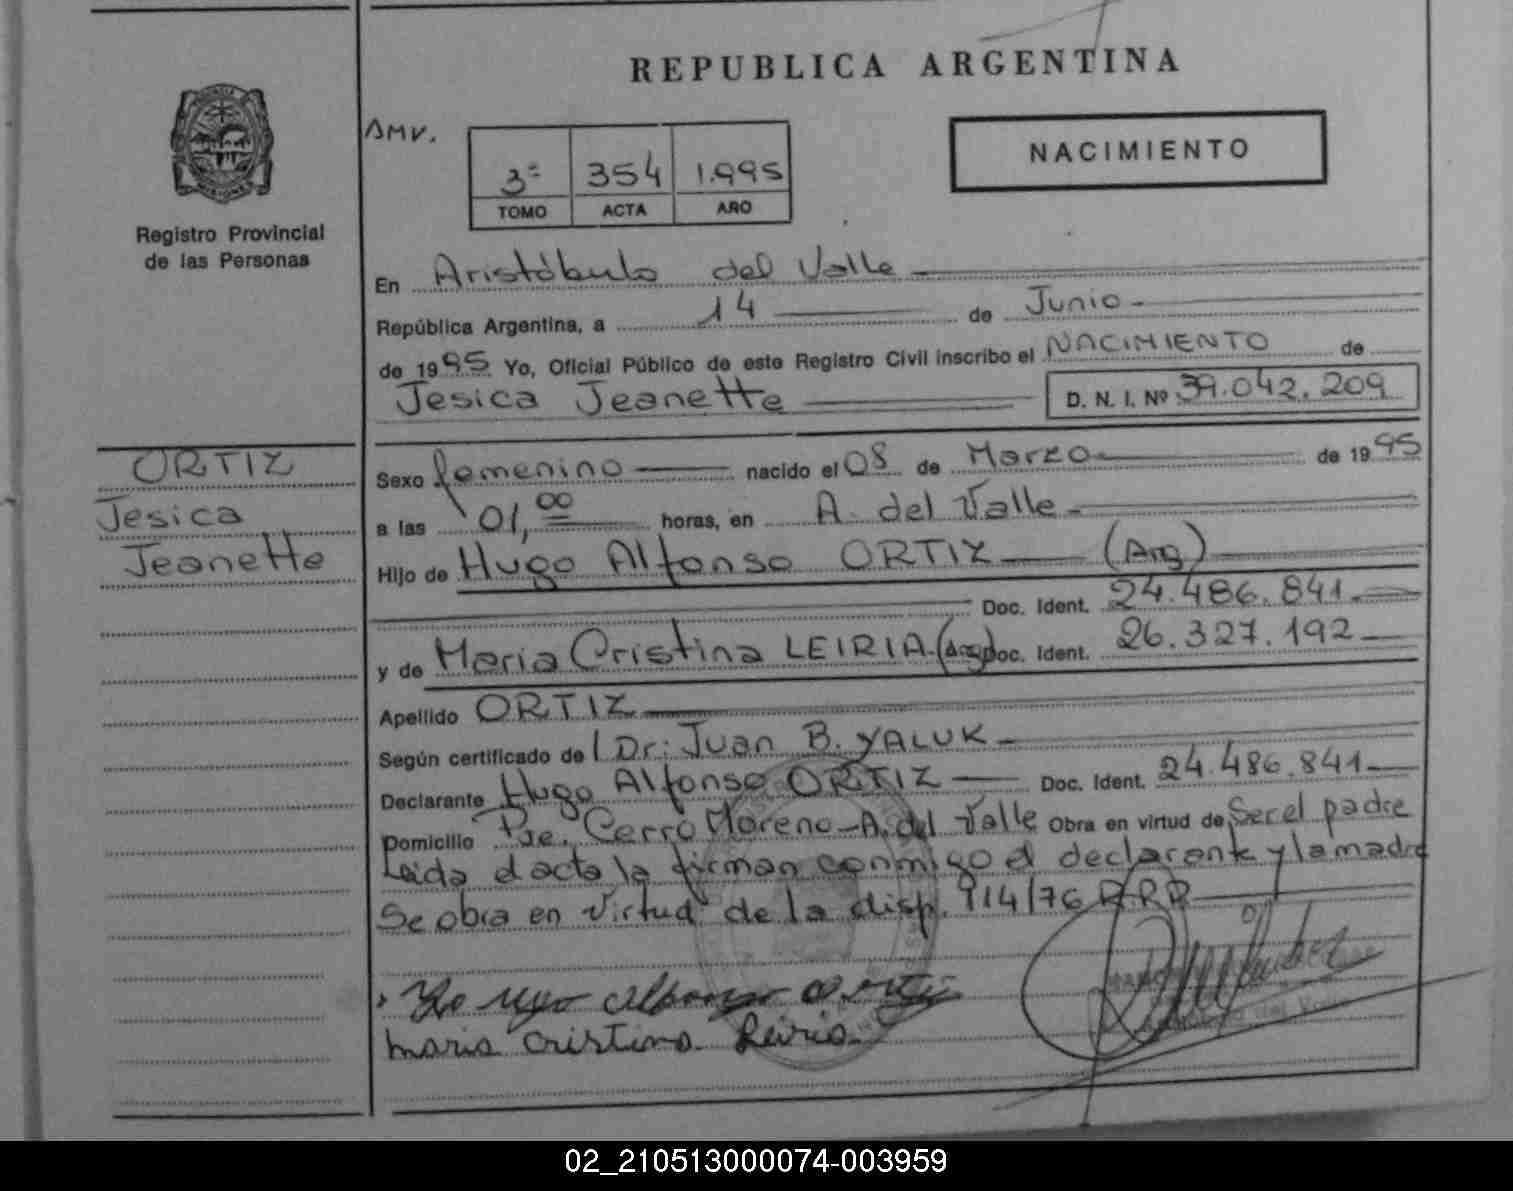 REPUBLICA ARGENTINA
AMV.
3º 354 1.995
TOMO ACTA AÑO
NACIMIENTO
Registro Provincial
de las Personas
En Aristóbulo del Valle
República Argentina, a 14 de Junio
de 1995 Yo, Oficial Público de este Registro Civil inscribo el NACIMIENTO de
Jesica Jeanette D. N. I. Nº 39.042.209
ORTIZ
Jesica
Jeanette
Sexo femenino nacido el 08 de Marzo de 1995
a las 01,00 horas, en A. del Valle
Hijo de Hugo Alfonso ORTIZ (Arg)
Doc. Ident. 24.486.841
y de Maria Cristina LEIRIA (Arg) Doc. Ident. 26.327.192
Apellido ORTIZ
Según certificado de Dr: Juan B. YALUK
Declarante Hugo Alfonso ORTIZ Doc. Ident. 24.486.841
Domicilio Pje. Cerro Moreno-A. del Valle Obra en virtud de Ser el padre
Leida el acta la firman conmigo el declarante y la madre
Se obra en virtud de la disp. 914/76 R.R.P.
Maria Cristina Leiria
02_210513000074-003959